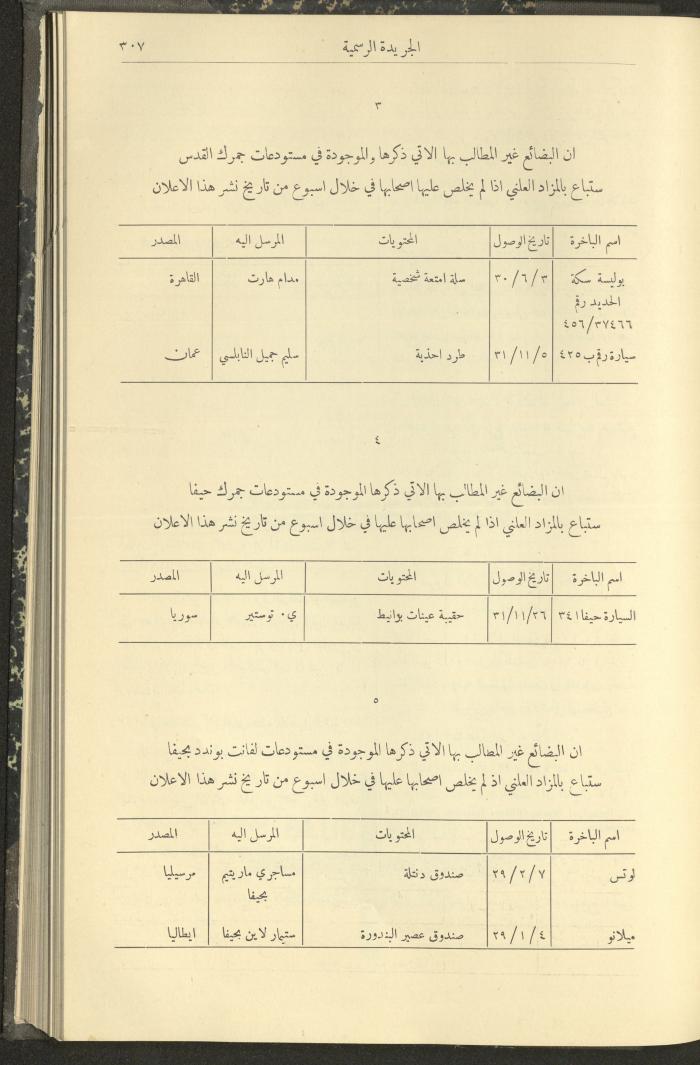 الجريدة الرسمية ٣٠٧
٣
ان البضائع غير المطالب بها الاتي ذكرها والموجودة في مستودعات جمرك القدس
ستباع بالمزاد العلني اذا لم يخلص عليها اصحابها في خلال اسبوع من تاريخ نشر هذا الاعلان
اسم الباخرة تاريخ الوصول المحتويات المرسل اليه المصدر
بوليسة سكة ٣/٦/٣٠ سلة امتعة شخصية مدام هارت القاهرة
الحديد رقم
٤٥٦/٣٧٤٦٦
سيارة رقم ب ٤٢٥ ٥/١١/٣١ طرد احذية سليم جميل النابلسي عمان
٤
ان البضائع غير المطالب بها الاتي ذكرها الموجودة في مستودعات جمرك حيفا
ستباع بالمزاد العلني اذا لم يخلص اصحابها عليها في خلال اسبوع من تاريخ نشر هذا الاعلان
اسم الباخرة تاريخ الوصول المحتويات المرسل اليه المصدر
السيارة حيفا ٣٤١ ٢٦/١١/٣١ حقيبة عينات بوانيط ي٠ توستير سوريا
٥
ان البضائع غير المطالب بها الاتي ذكرها الموجودة في مستودعات لفانت بوندد بحيفا
ستباع بالمزاد العلني اذ لم يخلص اصحابها عليها في خلال اسبوع من تاريخ نشر هذا الاعلان
اسم الباخرة تاريخ الوصول المحتويات المرسل اليه المصدر
لوتس ٧/٢/٢٩ صندوق دنتلة مساجري ماريتيم مرسيليا
بحيفا
ميلانو ٤/١/٢٩ صندوق عصير البندورة ستيمار لاين بحيفا ايطاليا